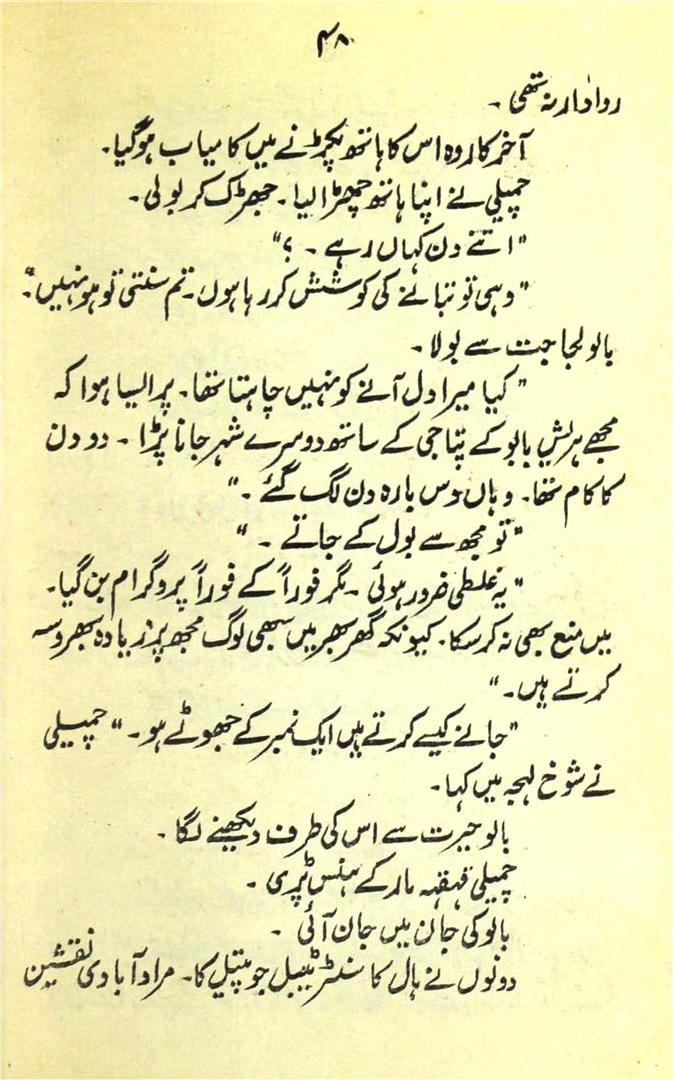 ۴۸
روادار نہ تھی ۔
آخر کار وہ اس کا ہاتھ پکڑنے میں کامیاب ہوگیا۔
چمپیلی نے اپنا ہاتھ چھڑا لیا ۔ جھڑک کر بولی ۔
"اتنے دن کہاں رہے ۔ ؟"
"وہی تو بتانے کی کوشش کر رہا ہوں ۔ تم سنتی تو ہو نہیں"۔
بالو لجاجت سے بولا ۔
"کیا میرا دل آنے کو نہیں چاہتا تھا۔ پر ایسا ہوا کہ
مجھے ہریش بابو کے پتاجی کے ساتھ دوسرے شہر جانا پڑا ۔ دو دن
کا کام تھا۔ وہاں دس بارہ دن لگ گئے ۔"
"تو مجھ سے بول کے جاتے ۔ "
"یہ غلطی ضرور ہوئی ۔ مگر فوراً کے فوراً پروگرام بن گیا۔
میں منع بھی نہ کر سکا۔ کیونکہ گھر بھر میں سبھی لوگ مجھ پر زیادہ بھروسہ
کرتے ہیں۔"
"جانے کیسے کرتے ہیں ایک نمبر کے جھوٹے ہو ۔" چمپیلی
نے شوخ لہجہ میں کہا۔
بالو حیرت سے اس کی طرف دیکھنے لگا ۔
چمپیلی قہقہہ مار کے ہنس پڑی ۔
بالو کی جان میں جان آئی ۔
دونوں نے ہال کا سنٹر ٹیبل جو پیتل کا۔ مرادآبادی نقشین